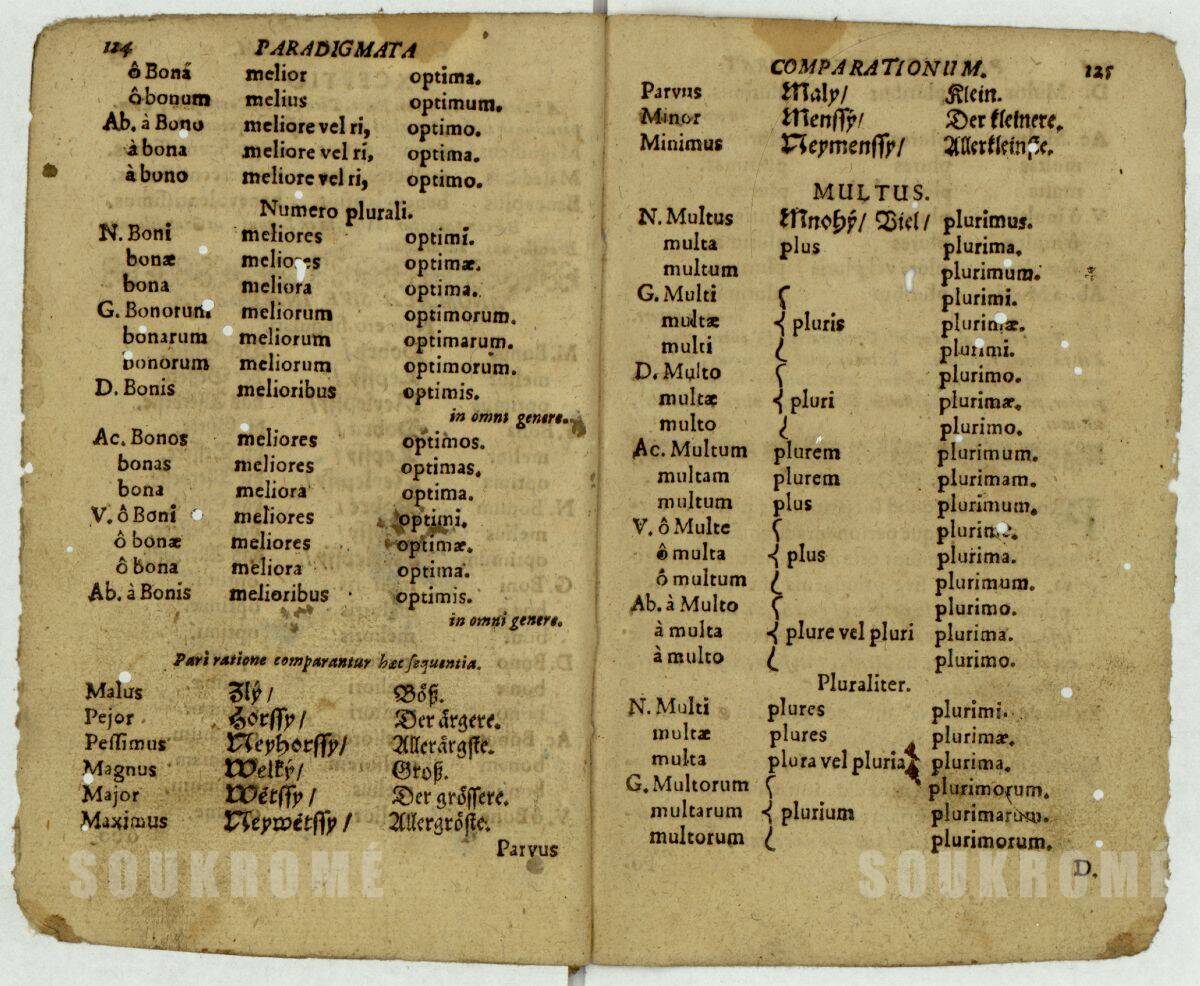 124 PARADIGMATA
ô Boná melior optima.
ô bonum melius optimum.
Ab. à Bono meliore vel ri, optimo.
à bona meliore vel ri, optima.
à bono meliore vel ri, optimo.
Numero plurali.
N. Boni meliores optimi.
bonæ meliores optimæ.
bona meliora optima.
G. Bonorum meliorum optimorum.
bonarum meliorum optimarum.
bonorum meliorum optimorum.
D. Bonis melioribus optimis.
in omni genere.
Ac. Bonos meliores optimos.
bonas meliores optimas.
bona meliora optima.
V. ô Boni meliores optimi.
ô bonæ meliores optimæ.
ô bona meliora optima.
Ab. à Bonis melioribus optimis.
in omni genere.
Pari ratione comparantur hæc sequentia.
Malus Zlý/ Böß.
Pejor Horssy/ Der ärgere.
Pessimus Neyhorssy/ Allerärgste.
Magnus Welký/ Groß.
Major Wětssy/ Der grössere.
Maximus Neywětssy/ Allergröste.
Parvus
SOUKROMÉ
COMPARATIONUM. 125
Parvus Maly/ Klein.
Minor Menssý/ Der kleinere.
Minimus Neymenssy/ Allerkleinste.
MULTUS.
N. Multus Mnohý/ Viel/ plurimus.
multa plus plurima.
multum plurimum.
G. Multi plurimi.
multæ { pluris plurimæ.
multi plurimi.
D. Multo plurimo.
multæ { pluri plurimæ.
multo plurimo.
Ac. Multum plurem plurimum.
multam plurem plurimam.
multum plus plurimum.
V. ô Multe plurime.
ô multa { plus plurima.
ô multum plurimum.
Ab. à Multo plurimo.
à multa { plure vel pluri plurima.
à multo plurimo.
Pluraliter.
N. Multi plures plurimi.
multæ plures plurimæ.
multa plura vel pluria, plurima.
G. Multorum plurimorum.
multarum { plurium plurimarum.
multorum plurimorum.
D.
SOUKROMÉ